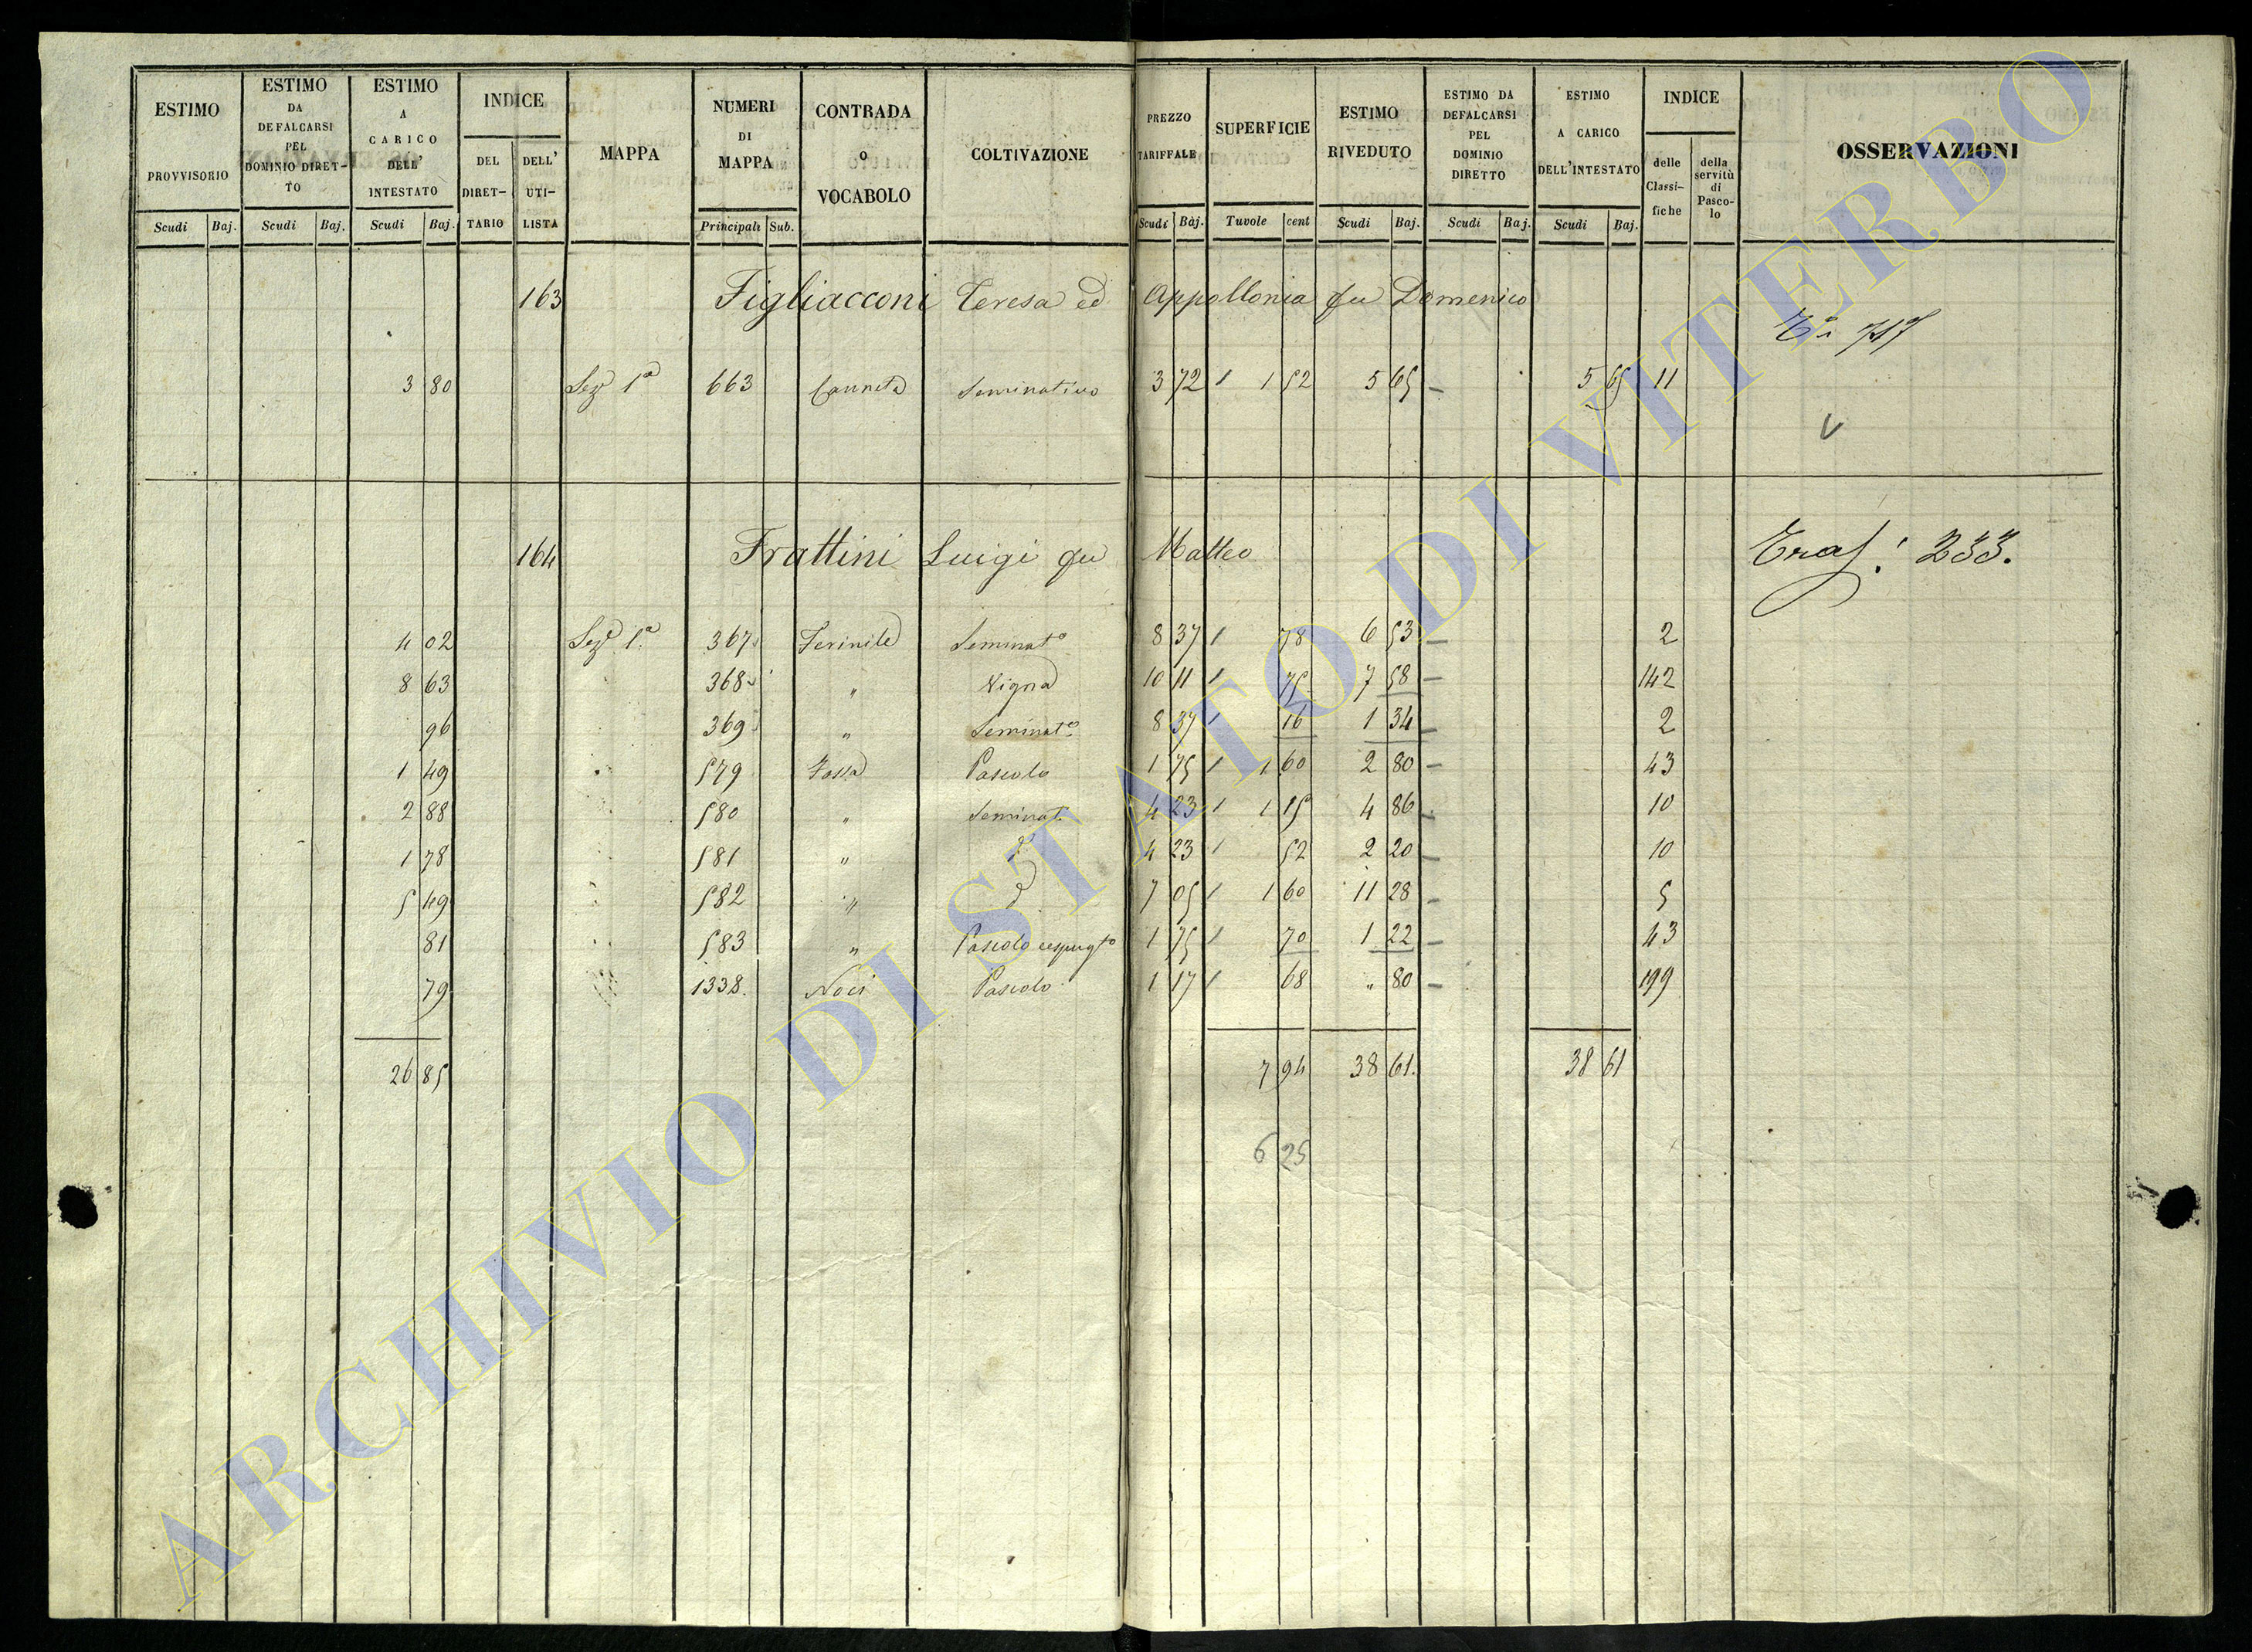 ESTIMO PROVVISORIO
Scudi Baj.
ESTIMO DA DEFALCARSI PEL DOMINIO DIRET-TO
Scudi Baj.
ESTIMO A CARICO DELL' INTESTATO
Scudi Baj.
INDICE
DEL DIRET-TARIO
DELL' UTI-LISTA
MAPPA
NUMERI DI MAPPA
Principali Sub.
CONTRADA O VOCABOLO
COLTIVAZIONE
PREZZO TARIFFALE
Scudi Baj.
SUPERFICIE
Tavole cent
ESTIMO RIVEDUTO
Scudi Baj.
ESTIMO DA DEFALCARSI PEL DOMINIO DIRETTO
Scudi Baj.
ESTIMO A CARICO DELL'INTESTATO
Scudi Baj.
INDICE
delle Classi-fiche
della servitù di Pasco-lo
OSSERVAZIONI
163 Figliacconi Teresa ed Appollonia fu Domenico
3 80 Sez 1a 663 Canneta Seminativo 3 72 1 1 52 5 65 — 5 65 11
164 Frattini Luigi fu Matteo 233.
4 02 Seze 1a 367 Ferinile Seminato 8 37 1 78 6 53 — 2
8 63 368 " Vigna 10 11 1 75 7 58 — 142
96 369 " Seminato 8 37 1 16 1 34 — 2
1 49 579 Fossa Pascolo 1 75 1 1 60 2 80 — 43
2 88 580 " Seminat. 4 23 1 1 15 4 86 — 10
1 78 581 " 4 23 1 52 2 20 — 10
5 49 582 " 7 05 1 1 60 11 28 — 5
81 583 " Pascolo cespugto 1 75 1 70 1 22 — 43
79 1338. Noci Pascolo 1 17 1 68 " 80 — 199
26 85 7 94 38 61. 38 61
6 25
ARCHIVIO DI STATO DI VITERBO